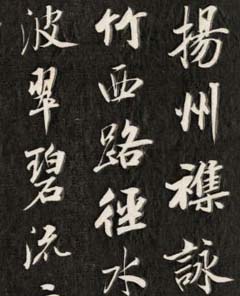 揚州襍詠
竹西路徑水
波翠碧流